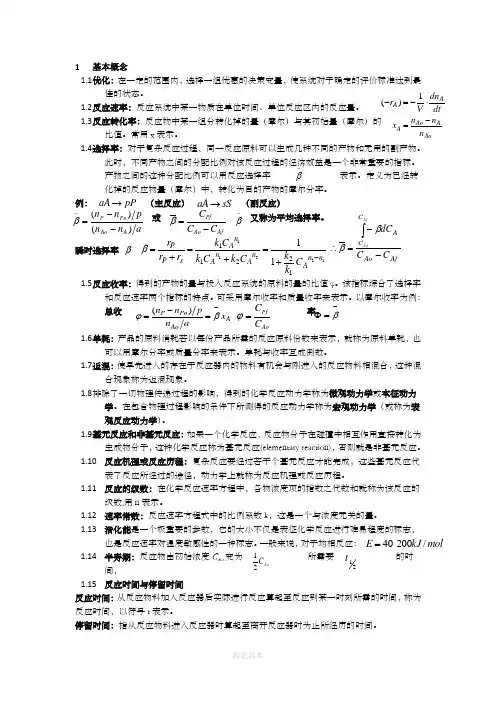 1 基本概念
1.1优化：在一定的范围内，选择一组优惠的决策变量，使系统对于确定的评价标准达到最
佳的状态。
1.2反应速率：反应系统中某一物质在单位时间、单位反应区内的反应量。 (−r_A) = −1/V · dn_A/dt
1.3反应转化率：反应物中某一组分转化掉的量（摩尔）与其初始量（摩尔）的 x_A = (n_Ao − n_A)/n_Ao
比值。常用 x 表示。
1.4选择率：对于复杂反应过程，同一反应原料可以生成几种不同的产物和无用的副产物。
此时，不同产物之间的分配比例对该反应过程的经济效益是一个非常重要的指标。
产物之间的这种分配比例可以用反应选择率 β 表示。定义为已经转
化掉的反应物量（摩尔）中，转化为目的产物的摩尔分率。
例： aA → pP （主反应） aA → sS （副反应）
β̄ = (n_P − n_Po)/p / (n_Ao − n_A)/a 或 β̄ = C_Pf/(C_Ao − C_Af) β̄ 又称为平均选择率。
瞬时选择率 β β = r_P/(r_P + r_s) = k₁C_A^n₁/(k₁C_A^n₁ + k₂C_A^n₂) = 1/(1 + k₂/k₁ C_A^(n₂−n₁)) ∴ β̄ = ∫_{C_Ao}^{C_Af} −βdC_A/(C_Ao − C_Af)
1.5反应收率：得到的产物的量与投入反应系统的原料的量的比值φ。该指标综合了选择率
和反应速率两个指标的特点。可采用摩尔收率和质量收率来表示。以摩尔收率为例：
总收 φ = (n_P − n_Po)/p / n_Ao/a = β̄x_A φ = C_Pf/C_Ao 率Φ = β̄
1.6单耗：产品的原料消耗若以每份产品所需的反应原料份数来表示，就称为原料单耗，也
可以用摩尔分率或质量分率来表示。单耗与收率互成倒数。
1.7返混：使早先进入的存在于反应器内的物料有机会与刚进入的反应物料相混合，这种混
合现象称为返混现象。
1.8排除了一切物理传递过程的影响，得到的化学反应动力学称为微观动力学或本征动力
学。在包含物理过程影响的条件下所测得的反应动力学称为宏观动力学（或称为表
观反应动力学）。
1.9基元反应和非基元反应：如果一个化学反应，反应物分子在碰撞中相互作用直接转化为
生成物分子，这种化学反应称为基元反应(elementary reacion)，否则就是非基元反应。
1.10 反应机理或反应历程：复杂反应要经过若干个基元反应才能完成，这些基元反应代
表了反应所经过的途径，动力学上就称为反应机理或反应历程。
1.11 反应的级数：在化学反应速率方程中，各物浓度项的指数之代数和就称为该反应的
级数,用 n 表示。
1.12 速率常数：反应速率方程式中的比例系数 k，这是一个与浓度无关的量。
1.13 活化能是一个极重要的参数，它的大小不仅是表征化学反应进行难易程度的标志，
也是反应速率对温度敏感性的一种标志。一般来说，对于均相反应： E = 40-200kJ/mol
1.14 半寿期：反应物由初始浓度 C_Ao 变为 1/2 C_Ao 所需要 t_1/2 的时
间，
1.15 反应时间与停留时间
反应时间：从反应物料加入反应器后实际进行反应算起至反应到某一时刻所需的时间，称为
反应时间，以符号 t 表示。
停留时间：指从反应物料进入反应器时算起至离开反应器时为止所经历的时间。